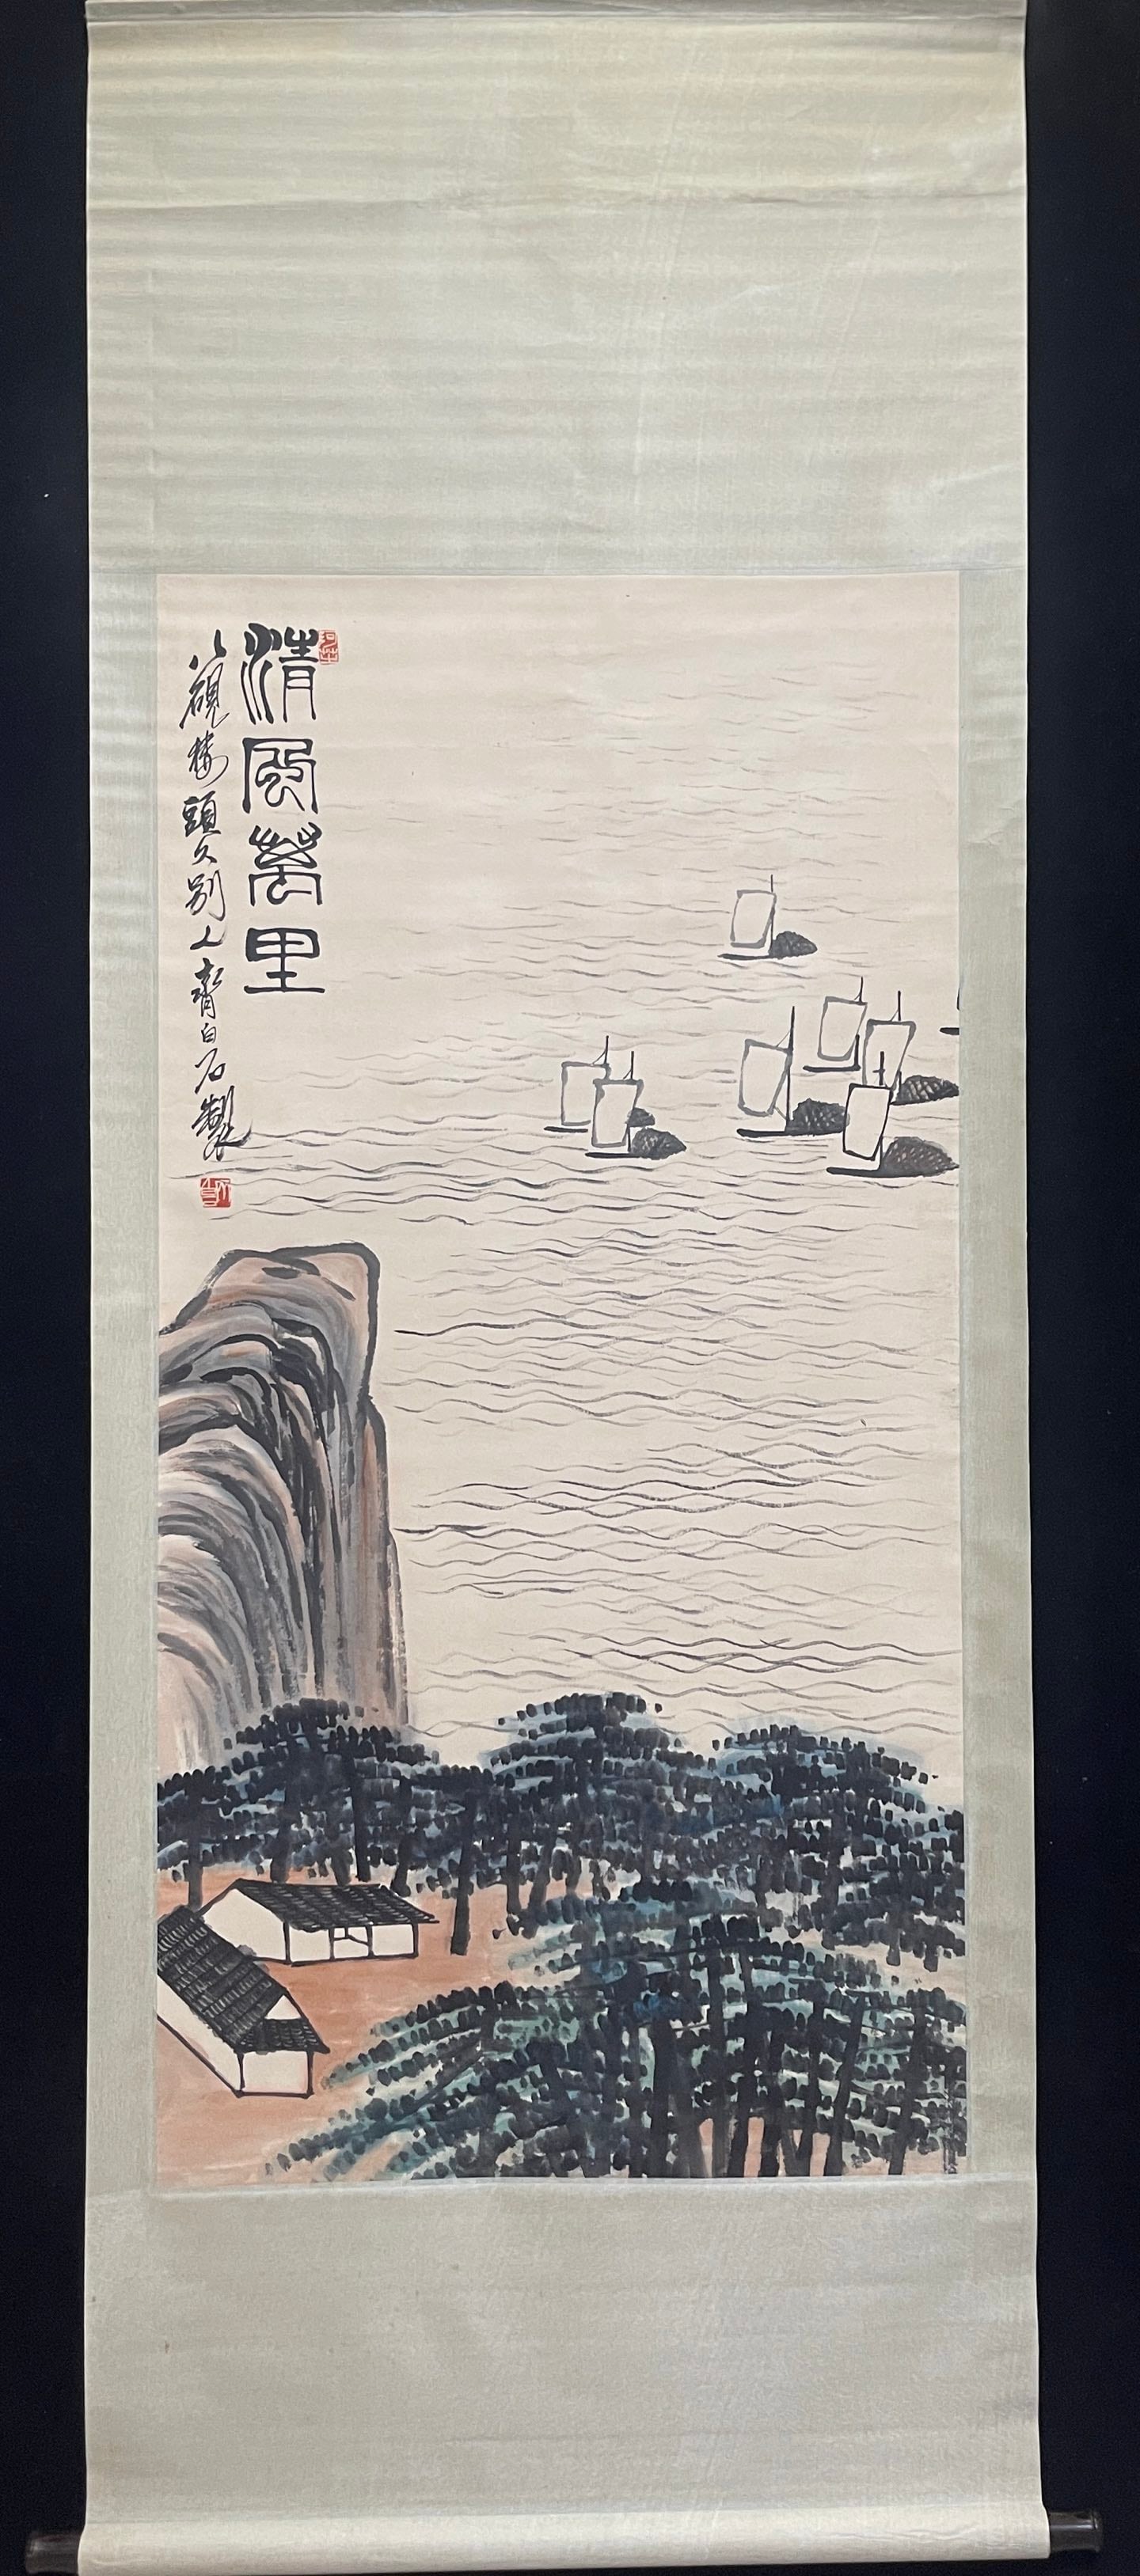 清風萬里
八硯樓頭久別人齊白石製